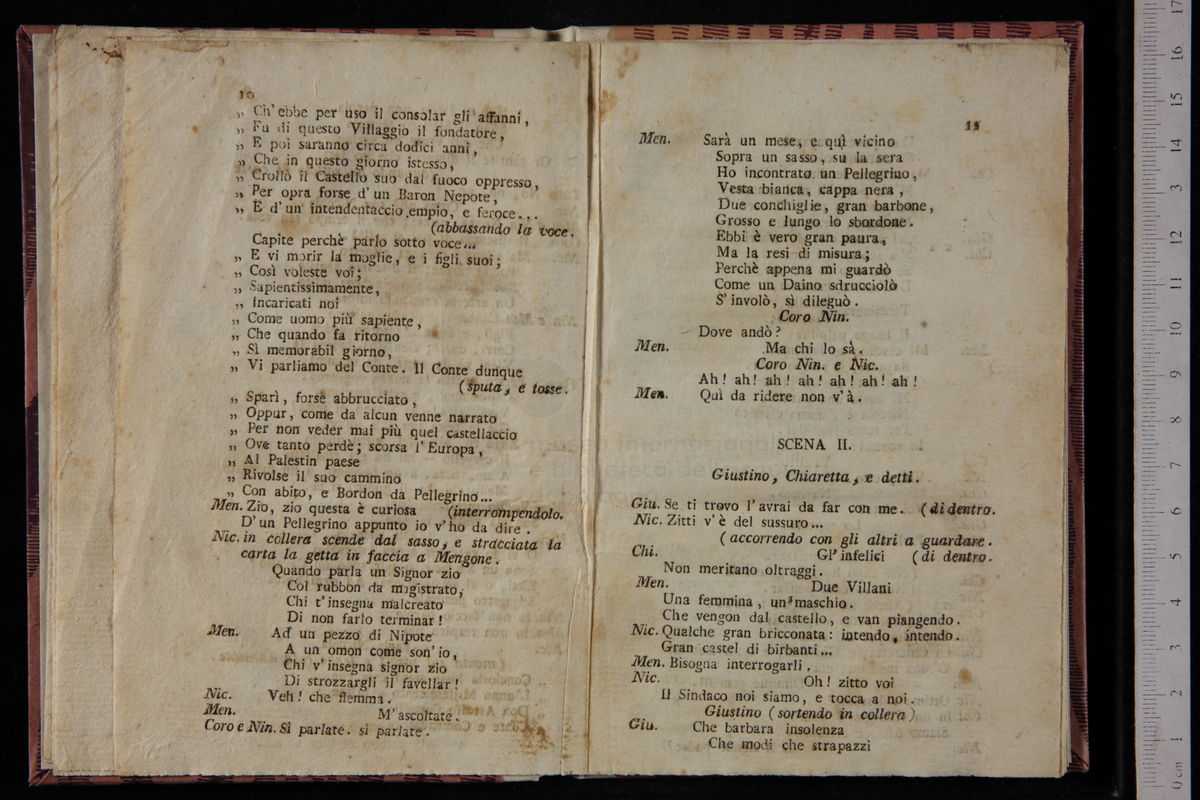 10
„ Ch' ebbe per uso il consolar gli affanni,
„ Fu di questo Villaggio il fondatore,
„ E poi saranno circa dodici anni,
„ Che in questo giorno istesso,
„ Crollò il Castello suo dal fuoco oppresso,
„ Per opra forse d' un Baron Nepote,
„ E d' un intendentaccio empio, e feroce...
(abbassando la voce.
Capite perchè parlo sotto voce...
„ E vi morir la moglie, e i figli suoi;
„ Così voleste voi;
„ Sapientissimamente,
„ Incaricati noi
„ Come uomo più sapiente,
„ Che quando fa ritorno
„ Sì memorabil giorno,
„ Vi parliamo del Conte. Il Conte dunque
(sputa, e tosse.
„ Sparì, forse abbrucciato,
„ Oppur, come da alcun venne narrato
„ Per non veder mai più quel castellaccio
„ Ove tanto perdè; scorsa l' Europa,
„ Al Palestin paese
„ Rivolse il suo cammino
„ Con abito, e Bordon da Pellegrino...
Men. Zio, zio questa è curiosa (interrompendolo.
D' un Pellegrino appunto io v' ho da dire.
Nic. in collera scende dal sasso, e stracciata la
carta la getta in faccia a Mengone.
Quando parla un Signor zio
Col rubbon da magistrato,
Chi t' insegna malcreato
Di non farlo terminar!
Men. Ad un pezzo di Nipote
A un' omon come son' io,
Chi v' insegna signor zio
Di strozzargli il favellar!
Nic. Veh! che flemma.
Men. M' ascoltate.
Coro e Nin. Sì parlate. sì parlate.
11
Men. Sarà un mese, e quì vicino
Sopra un sasso, su la sera
Ho incontrato un Pellegrino,
Vesta bianca, cappa nera,
Due conchiglie, gran barbone,
Grosso e lungo lo sbordone.
Ebbi è vero gran paura,
Ma la resi di misura;
Perchè appena mi guardò
Come un Daino sdrucciolò
S' involò, sì dileguò.
Coro Nin.
Dove andò?
Men. Ma chi lo sà.
Coro Nin. e Nic.
Ah! ah! ah! ah! ah! ah! ah!
Men. Quì da ridere non v' à.
SCENA II.
Giustino, Chiaretta, e detti.
Giu. Se ti trovo l' avrai da far con me. (di dentro.
Nic. Zitti v' è del sussuro...
(accorrendo con gli altri a guardare.
Chi. Gl' infelici (di dentro.
Non meritano oltraggi.
Men. Due Villani
Una femmina, un maschio.
Che vengon dal castello, e van piangendo.
Nic. Qualche gran bricconata: intendo, intendo.
Gran castel di birbanti...
Men. Bisogna interrogarli.
Nic. Oh! zitto voi
Il Sindaco noi siamo, e tocca a noi.
Giustino (sortendo in collera)
Giu. Che barbara insolenza
Che modi che strapazzi